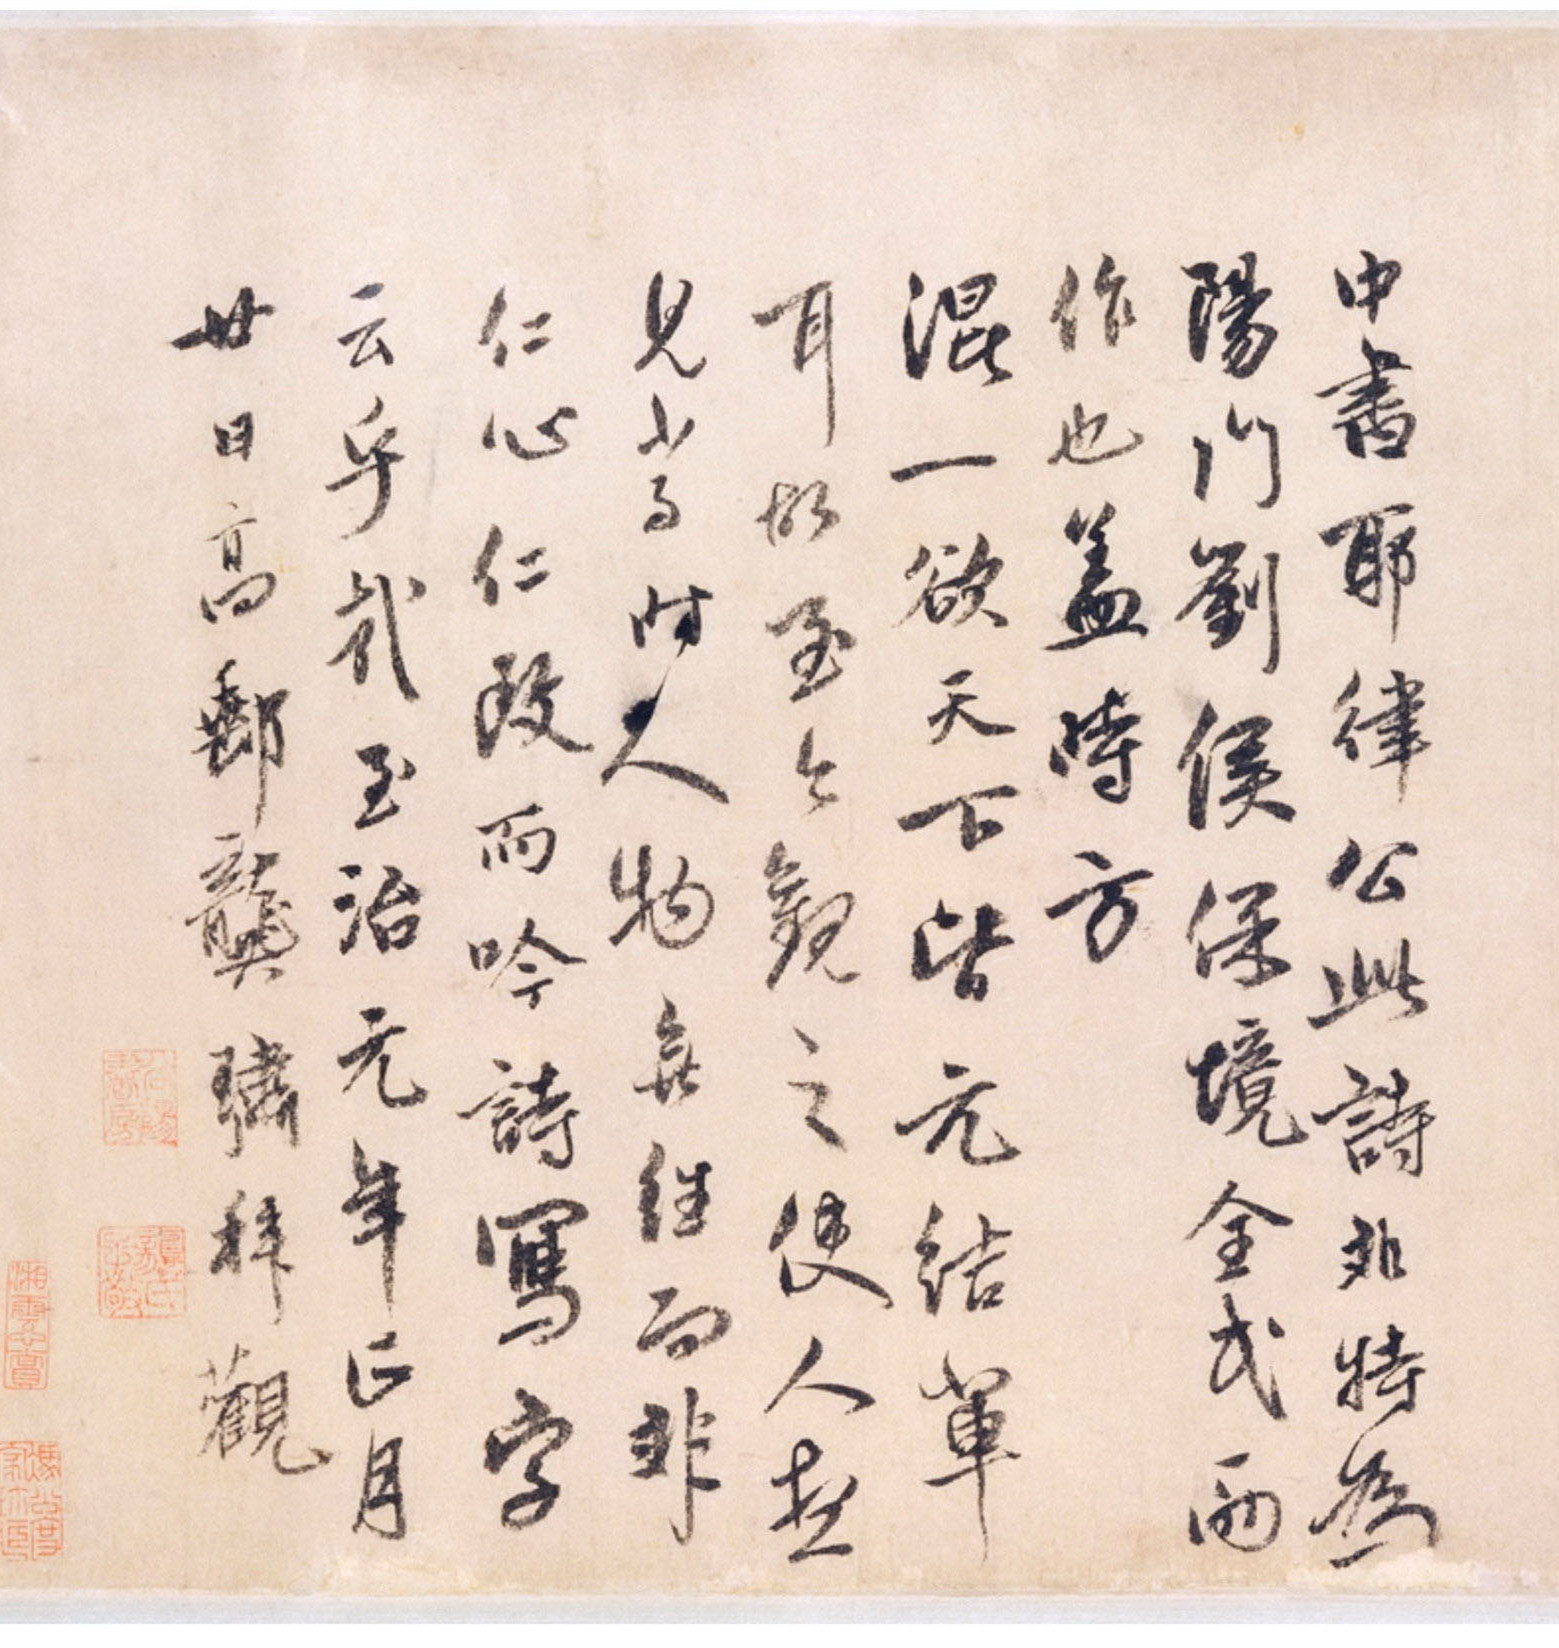 中書耶律公此詩非特為
陽門劉侯保境全民而
作也蓋時方
混一欲天下皆元結輩
耳故至今觀之使人想
見當時人物無往而非
仁心仁政而吟詩寫字
云乎哉至治元年正月
廿日高郵龔璛拜觀
龔氏子敬
湘雲心賞